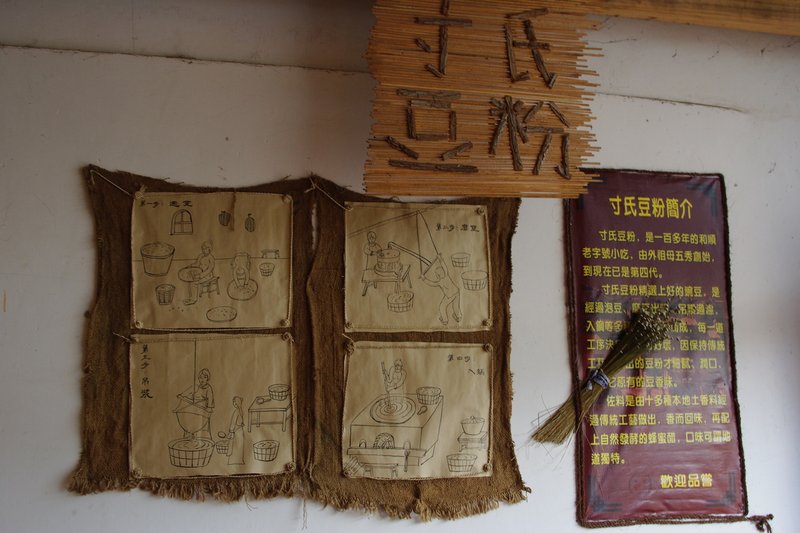 寸氏
豆粉
第一步 选豆
第二步 磨豆
第三步 吊浆
第四步 入锅
寸氏豆粉簡介
寸氏豆粉，是一百多年的和順
老字號小吃，由外祖母五秀創始，
到現在已是第四代。
寸氏豆粉精選上好的豌豆，是
經過泡豆
入鍋等多 成，每一道
工序決 好壞，因保持傳統
工 出的豆粉才細膩，潤口，
原有的豆香味。
佐料是由十多種本地土香料經
過傳統工藝做出，香而回味，再配
上自然發酵的蜂蜜醋，口味可謂地
道獨特。
歡迎品嘗